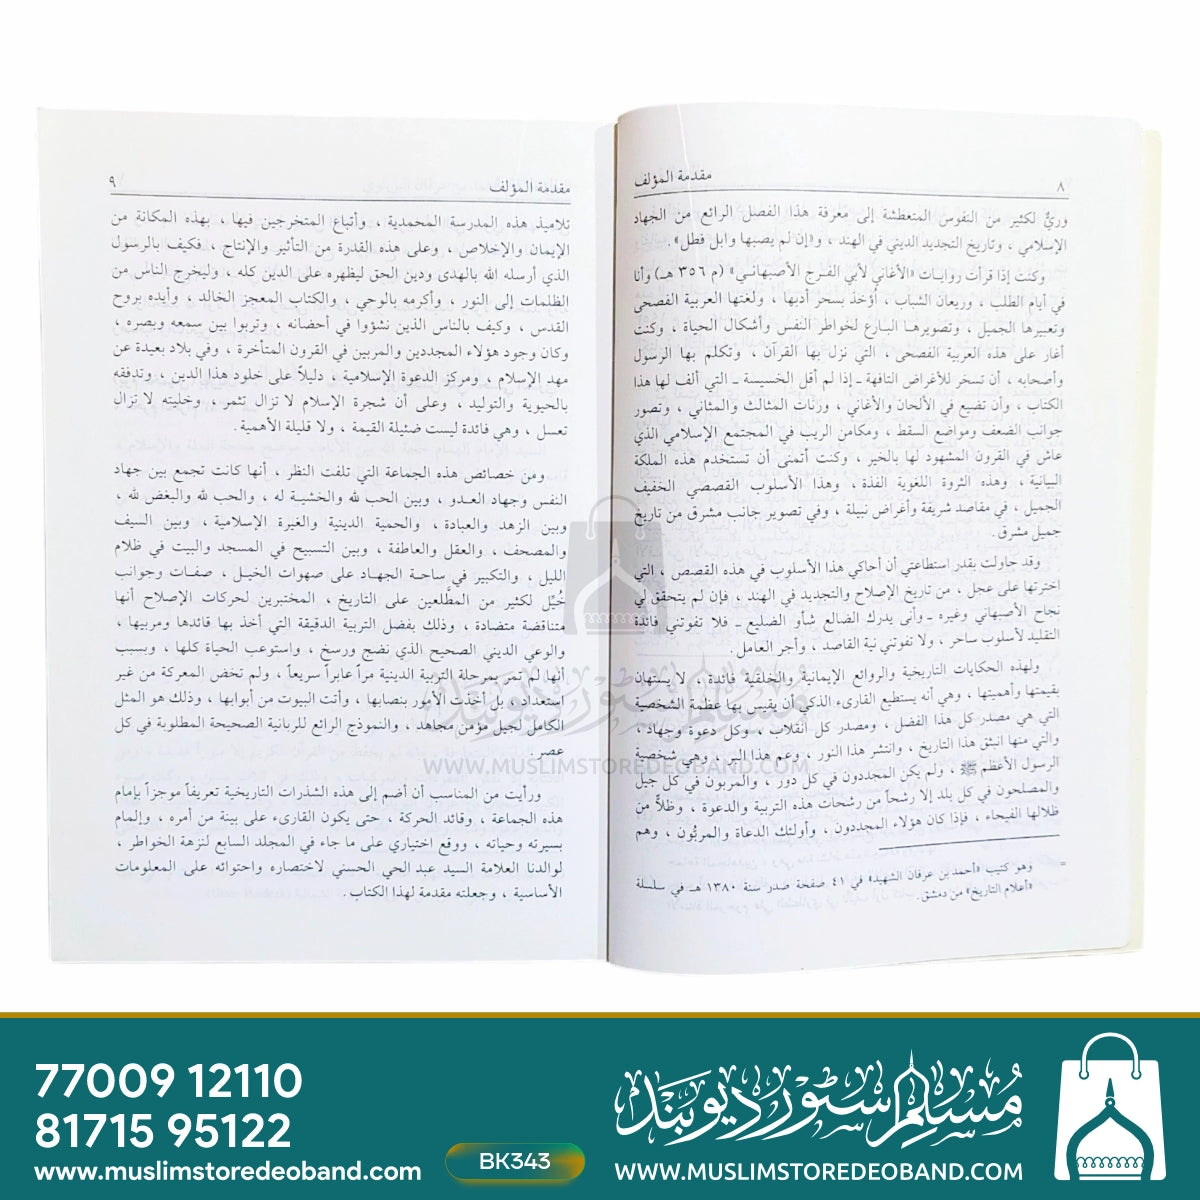 ٨ مقدمة المؤلف
وريٌّ لكثير من النفوس المتعطشة إلى معرفة هذا الفصل الرائع من الجهاد
الإسلامي ، وتاريخ التجديد الديني في الهند ، و«إن لم يصبها وابل فطل» .
وكنت إذا قرأت روايات «الأغاني لأبي الفرج الأصبهاني» (م ٣٥٦ هـ) وأنا
في أيام الطلب ، وريعان الشباب ، أؤخذ بسحر أدبها ، ولغتها العربية الفصحى
وتعبيرها الجميل ، وتصويرها البارع لخواطر النفس وأشكال الحياة ، وكنت
أغار على هذه العربية الفصحى ، التي نزل بها القرآن ، وتكلم بها الرسول
وأصحابه ، أن تسخر للأغراض التافهة ـ إذا لم أقل الخسيسة ـ التي ألف لها هذا
الكتاب ، وأن تضيع في الألحان والأغاني ، ورنات المثالث والمثاني ، وتصور
جوانب الضعف ومواضع السقط ، ومكامن الريب في المجتمع الإسلامي الذي
عاش في القرون المشهود لها بالخير ، وكنت أتمنى أن تستخدم هذه الملكة
البيانية ، وهذه الثروة اللغوية الفذة ، وهذا الأسلوب القصصي الخفيف
الجميل ، في مقاصد شريفة وأغراض نبيلة ، وفي تصوير جانب مشرق من تاريخ
جميل مشرق .
وقد حاولت بقدر استطاعتي أن أحاكي هذا الأسلوب في هذه القصص ، التي
اخترتها على عجل ، من تاريخ الإصلاح والتجديد في الهند ، فإن لم يتحقق لي
نجاح الأصبهاني وغيره ـ وأنى يدرك الضالع شأو الضليع ـ فلا تفوتني فائدة
التقليد لأسلوب ساحر ، ولا تفوتني نية القاصد ، وأجر العامل .
ولهذه الحكايات التاريخية والروائع الإيمانية والخلقية فائدة ، لا يستهان
بقيمتها وأهميتها ، وهي أنه يستطيع القارىء الذكي أن يقيس بها عظمة الشخصية
التي هي مصدر كل هذا الفضل ، ومصدر كل انقلاب ، وكل دعوة وجهاد ،
والتي منها انبثق هذا التاريخ ، وانتشر هذا النور ، وعم هذا البر ، وهي شخصية
الرسول الأعظم ﷺ ، ولم يكن المجددون في كل دور ، والمربون في كل جيل
والمصلحون في كل بلد إلا رشحاً من رشحات هذه التربية والدعوة ، وظلاً من
ظلالها الفيحاء ، فإذا كان هؤلاء المجددون ، وأولئك الدعاة والمربُّون ، وهم
= وهو كتيب «أحمد بن عرفان الشهيد» في ٤١ صفحة صدر سنة ١٣٨٠ هـ في سلسلة
«أعلام التاريخ» من دمشق .
مقدمة المؤلف ٩
تلاميذ هذه المدرسة المحمدية ، وأتباع المتخرجين فيها ، بهذه المكانة من
الإيمان والإخلاص ، وعلى هذه القدرة من التأثير والإنتاج ، فكيف بالرسول
الذي أرسله الله بالهدى ودين الحق ليظهره على الدين كله ، وليخرج الناس من
الظلمات إلى النور ، وأكرمه بالوحي ، والكتاب المعجز الخالد ، وأيده بروح
القدس ، وكيف بالناس الذين نشؤوا في أحضانه ، وتربوا بين سمعه وبصره ،
وكان وجود هؤلاء المجددين والمربين في القرون المتأخرة ، وفي بلاد بعيدة عن
مهد الإسلام ، ومركز الدعوة الإسلامية ، دليلاً على خلود هذا الدين ، وتدفقه
بالحيوية والتوليد ، وعلى أن شجرة الإسلام لا تزال تثمر ، وخليته لا تزال
تعسل ، وهي فائدة ليست ضئيلة القيمة ، ولا قليلة الأهمية .
ومن خصائص هذه الجماعة التي تلفت النظر ، أنها كانت تجمع بين جهاد
النفس وجهاد العدو ، وبين الحب لله والخشية له ، والحب لله والبغض لله ،
وبين الزهد والعبادة ، والحمية الدينية والغيرة الإسلامية ، وبين السيف
والمصحف ، والعقل والعاطفة ، وبين التسبيح في المسجد والبيت في ظلام
الليل ، والتكبير في ساحة الجهاد على صهوات الخيل ، صفات وجوانب
خُيِّل لكثير من المطَّلعين على التاريخ ، المختبرين لحركات الإصلاح أنها
متناقضة متضادة ، وذلك بفضل التربية الدقيقة التي أخذ بها قائدها ومربيها ،
والوعي الديني الصحيح الذي نضج ورسخ ، واستوعب الحياة كلها ، وبسبب
أنها لم تمر بمرحلة التربية الدينية مراً عابراً سريعاً ، ولم تخض المعركة من غير
استعداد ، بل أخذت الأمور بنصابها ، وأتت البيوت من أبوابها ، وذلك هو المثل
الكامل لجيل مؤمن مجاهد ، والنموذج الرائع للربانية الصحيحة المطلوبة في كل
عصر .
ورأيت من المناسب أن أضم إلى هذه الشذرات التاريخية تعريفاً موجزاً بإمام
هذه الجماعة ، وقائد الحركة ، حتى يكون القارىء على بينة من أمره ، وإلمام
بسيرته وحياته ، ووقع اختياري على ما جاء في المجلد السابع لنزهة الخواطر ،
لوالدنا العلامة السيد عبد الحي الحسني لاختصاره واحتوائه على المعلومات
الأساسية ، وجعلته مقدمة لهذا الكتاب .
مسلم سٹور دیوبند
WWW.MUSLIMSTOREDEOBAND.COM
77009 12110
81715 95122
www.muslimstoredeoband.com
BK343
مسلم سٹور دیوبند
WWW.MUSLIMSTOREDEOBAND.COM